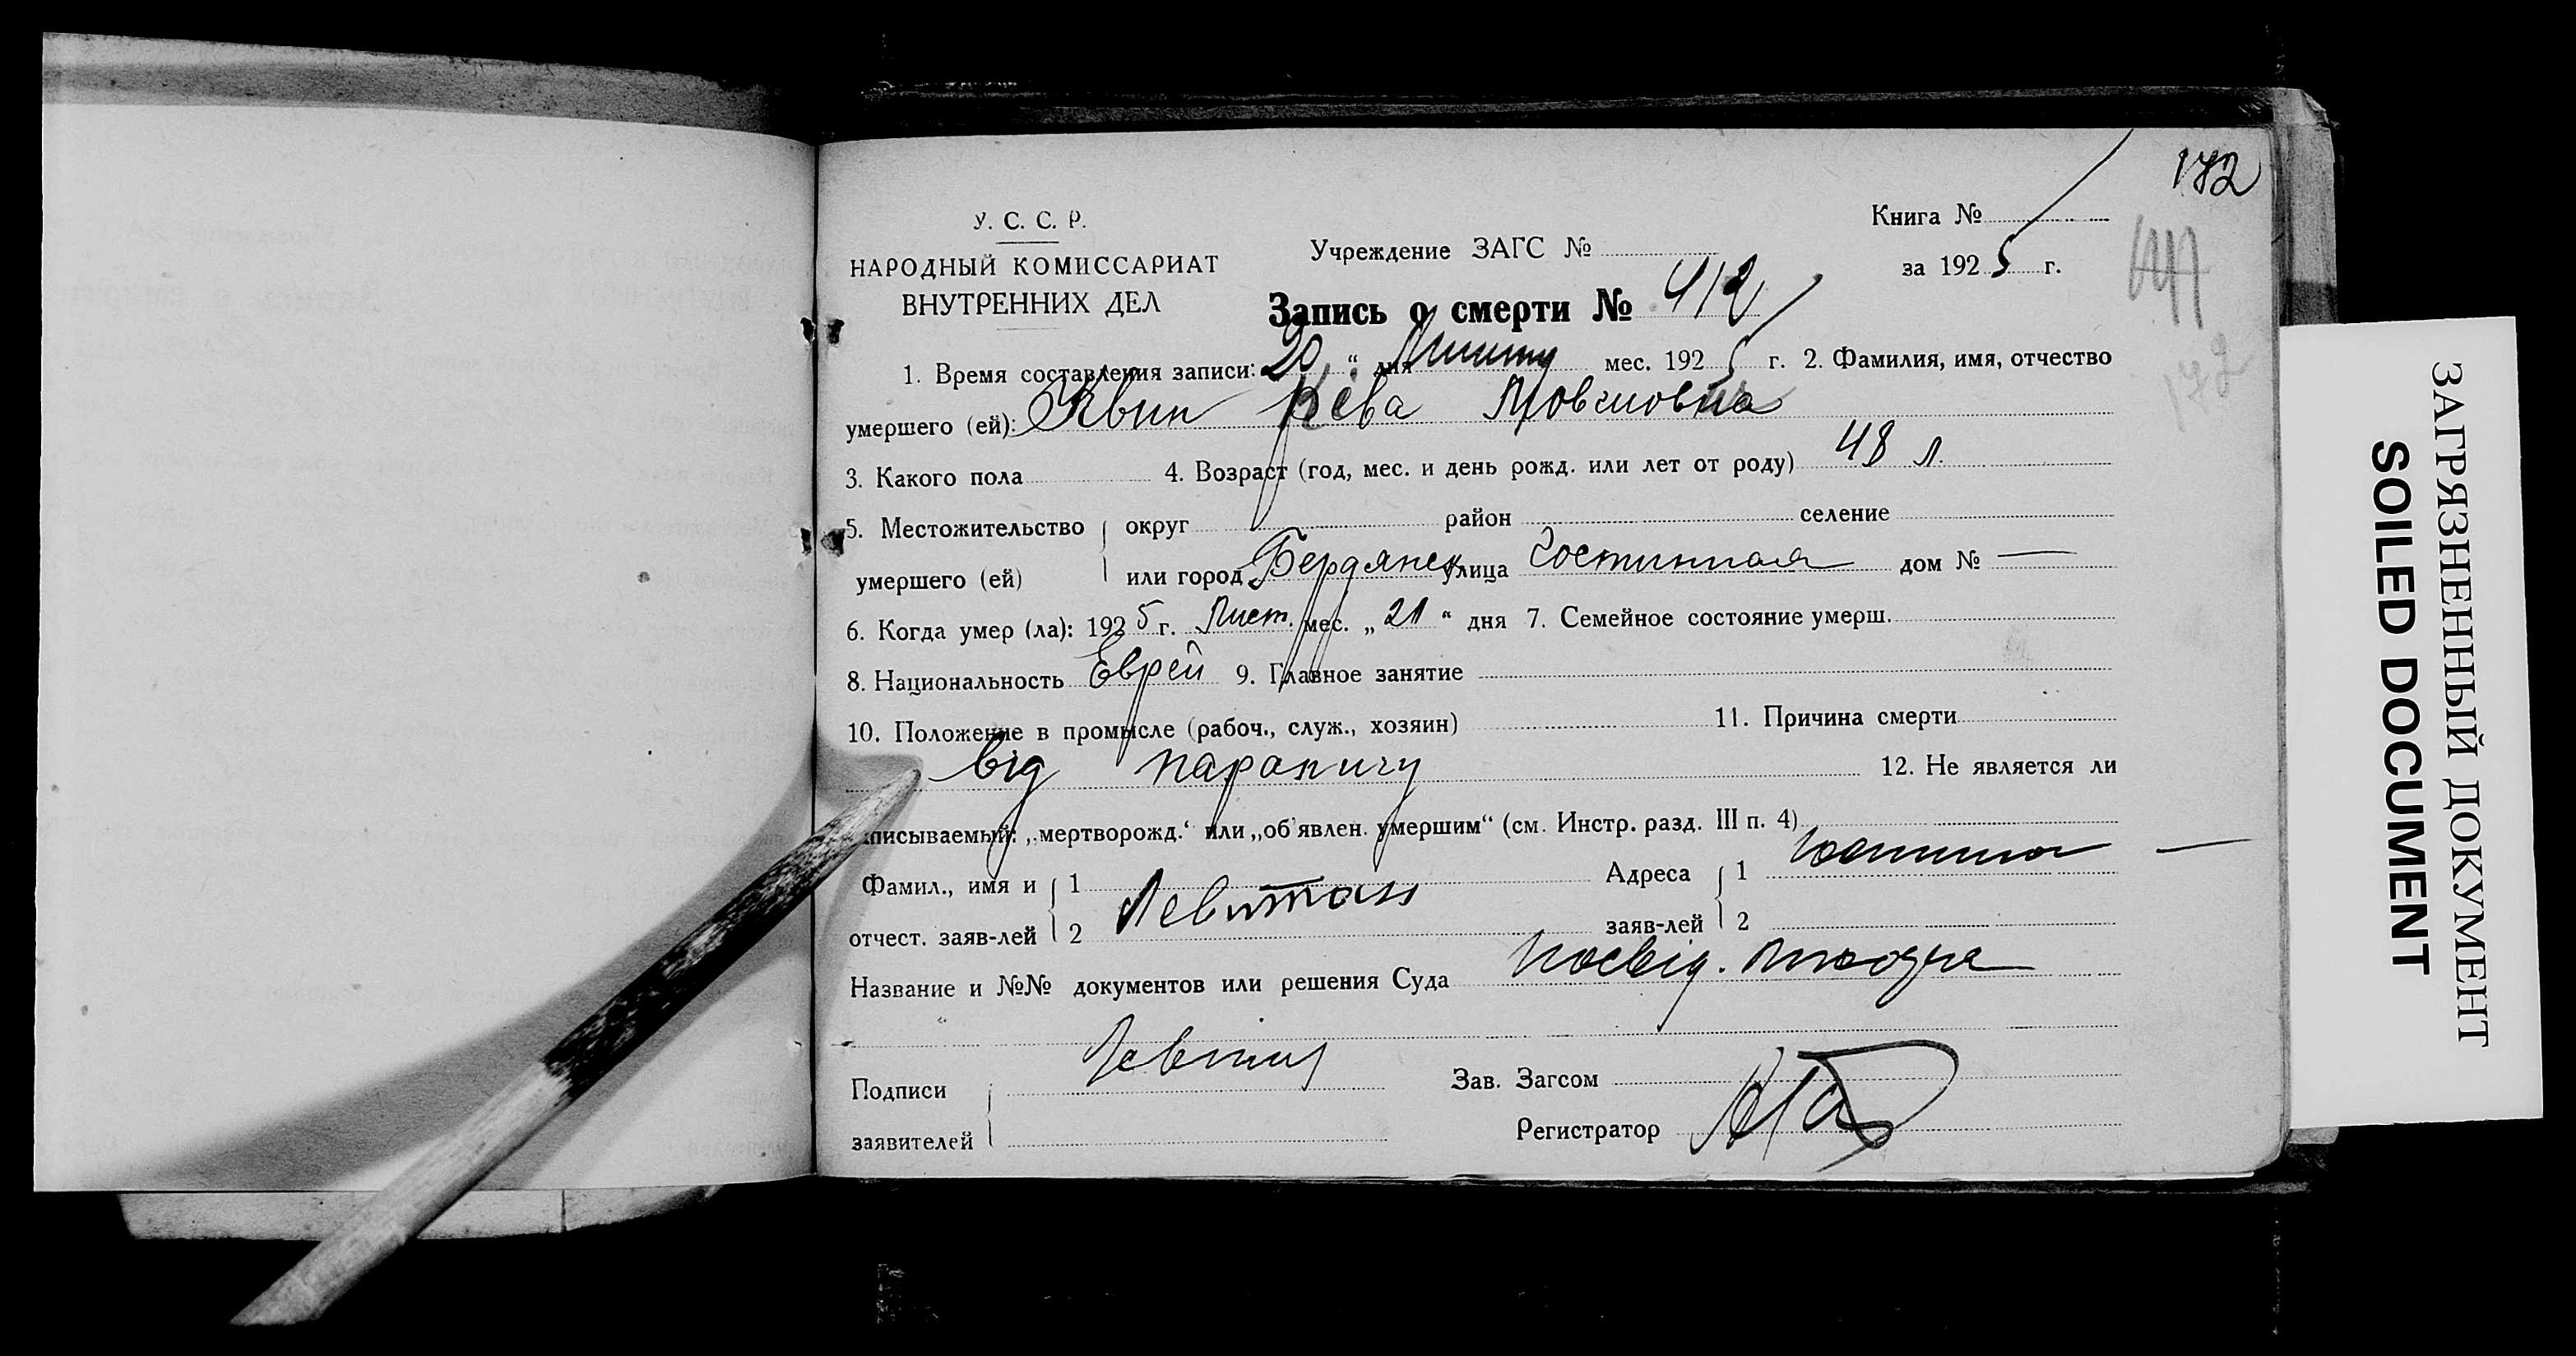 172
У. С. С. Р.
НАРОДНЫЙ КОМИССАРИАТ
ВНУТРЕННИХ ДЕЛ
Учреждение ЗАГС №
Книга №
за 1925 г.
Запись о смерти № 412
1. Время составления записи: 20 " дня мес. 1925 г. 2. Фамилия, имя, отчество
умершего (ей): Квин Рева Мовшовна
3. Какого пола 4. Возраст (год, мес. и день рожд. или лет от роду) 48 л.
5. Местожительство округ район селение
умершего (ей) или город Бердянск улица Гостинная дом № —
6. Когда умер (ла): 1925 г. Лист. мес. „ 21 “ дня 7. Семейное состояние умерш.
8. Национальность Еврей 9. Главное занятие
10. Положение в промысле (рабоч., служ., хозяин) 11. Причина смерти
від параличу 12. Не является ли
писываемый: „мертворожд.‘ или „об’явлен. умершим“ (см. Инстр. разд. III п. 4)
Фамил., имя и 1 Адреса 1
отчест. заяв-лей 2 Левитан заяв-лей 2
Название и №№ документов или решения Суда посвід.
Подписи Зав. Загсом
заявителей Регистратор
172
ЗАГРЯЗНЕННЫЙ ДОКУМЕНТ
SOILED DOCUMENT